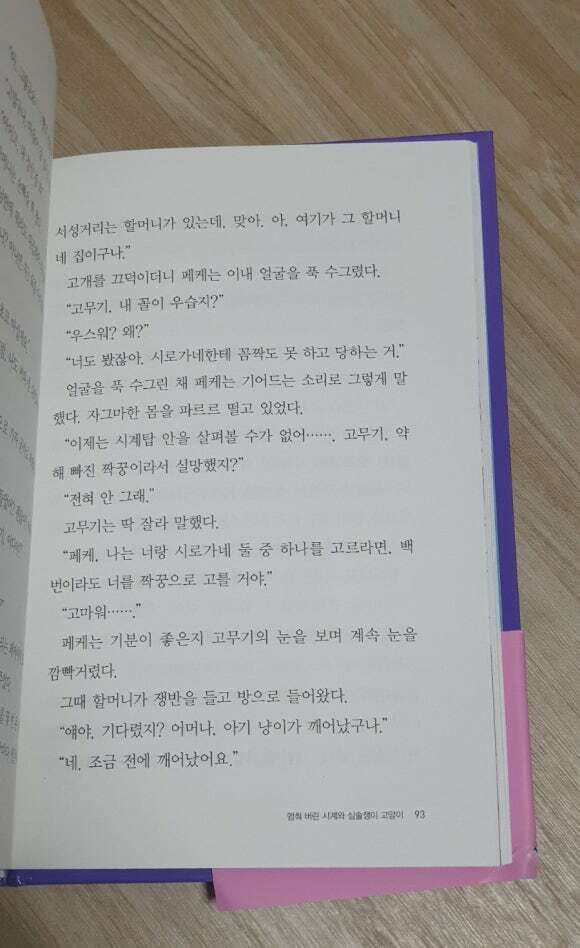 서성거리는 할머니가 있는데. 맞아. 아, 여기가 그 할머니
네 집이구나.”
고개를 끄덕이더니 페케는 이내 얼굴을 푹 수그렸다.
“고무기, 내 꼴이 우습지?”
“우스워? 왜?”
“너도 봤잖아. 시로가네한테 꼼짝도 못 하고 당하는 거.”
얼굴을 푹 수그린 채 페케는 기어드는 소리로 그렇게 말
했다. 자그마한 몸을 파르르 떨고 있었다.
“이제는 시계탑 안을 살펴볼 수가 없어……. 고무기, 약
해 빠진 짝꿍이라서 실망했지?”
“전혀 안 그래.”
고무기는 딱 잘라 말했다.
“페케, 나는 너랑 시로가네 둘 중 하나를 고르라면, 백
번이라도 너를 짝꿍으로 고를 거야.”
“고마워…….”
페케는 기분이 좋은지 고무기의 눈을 보며 계속 눈을
깜빡거렸다.
그때 할머니가 쟁반을 들고 방으로 들어왔다.
“얘야, 기다렸지? 어머나, 아기 냥이가 깨어났구나.”
“네, 조금 전에 깨어났어요.”
멈춰 버린 시계와 심술쟁이 고양이 93